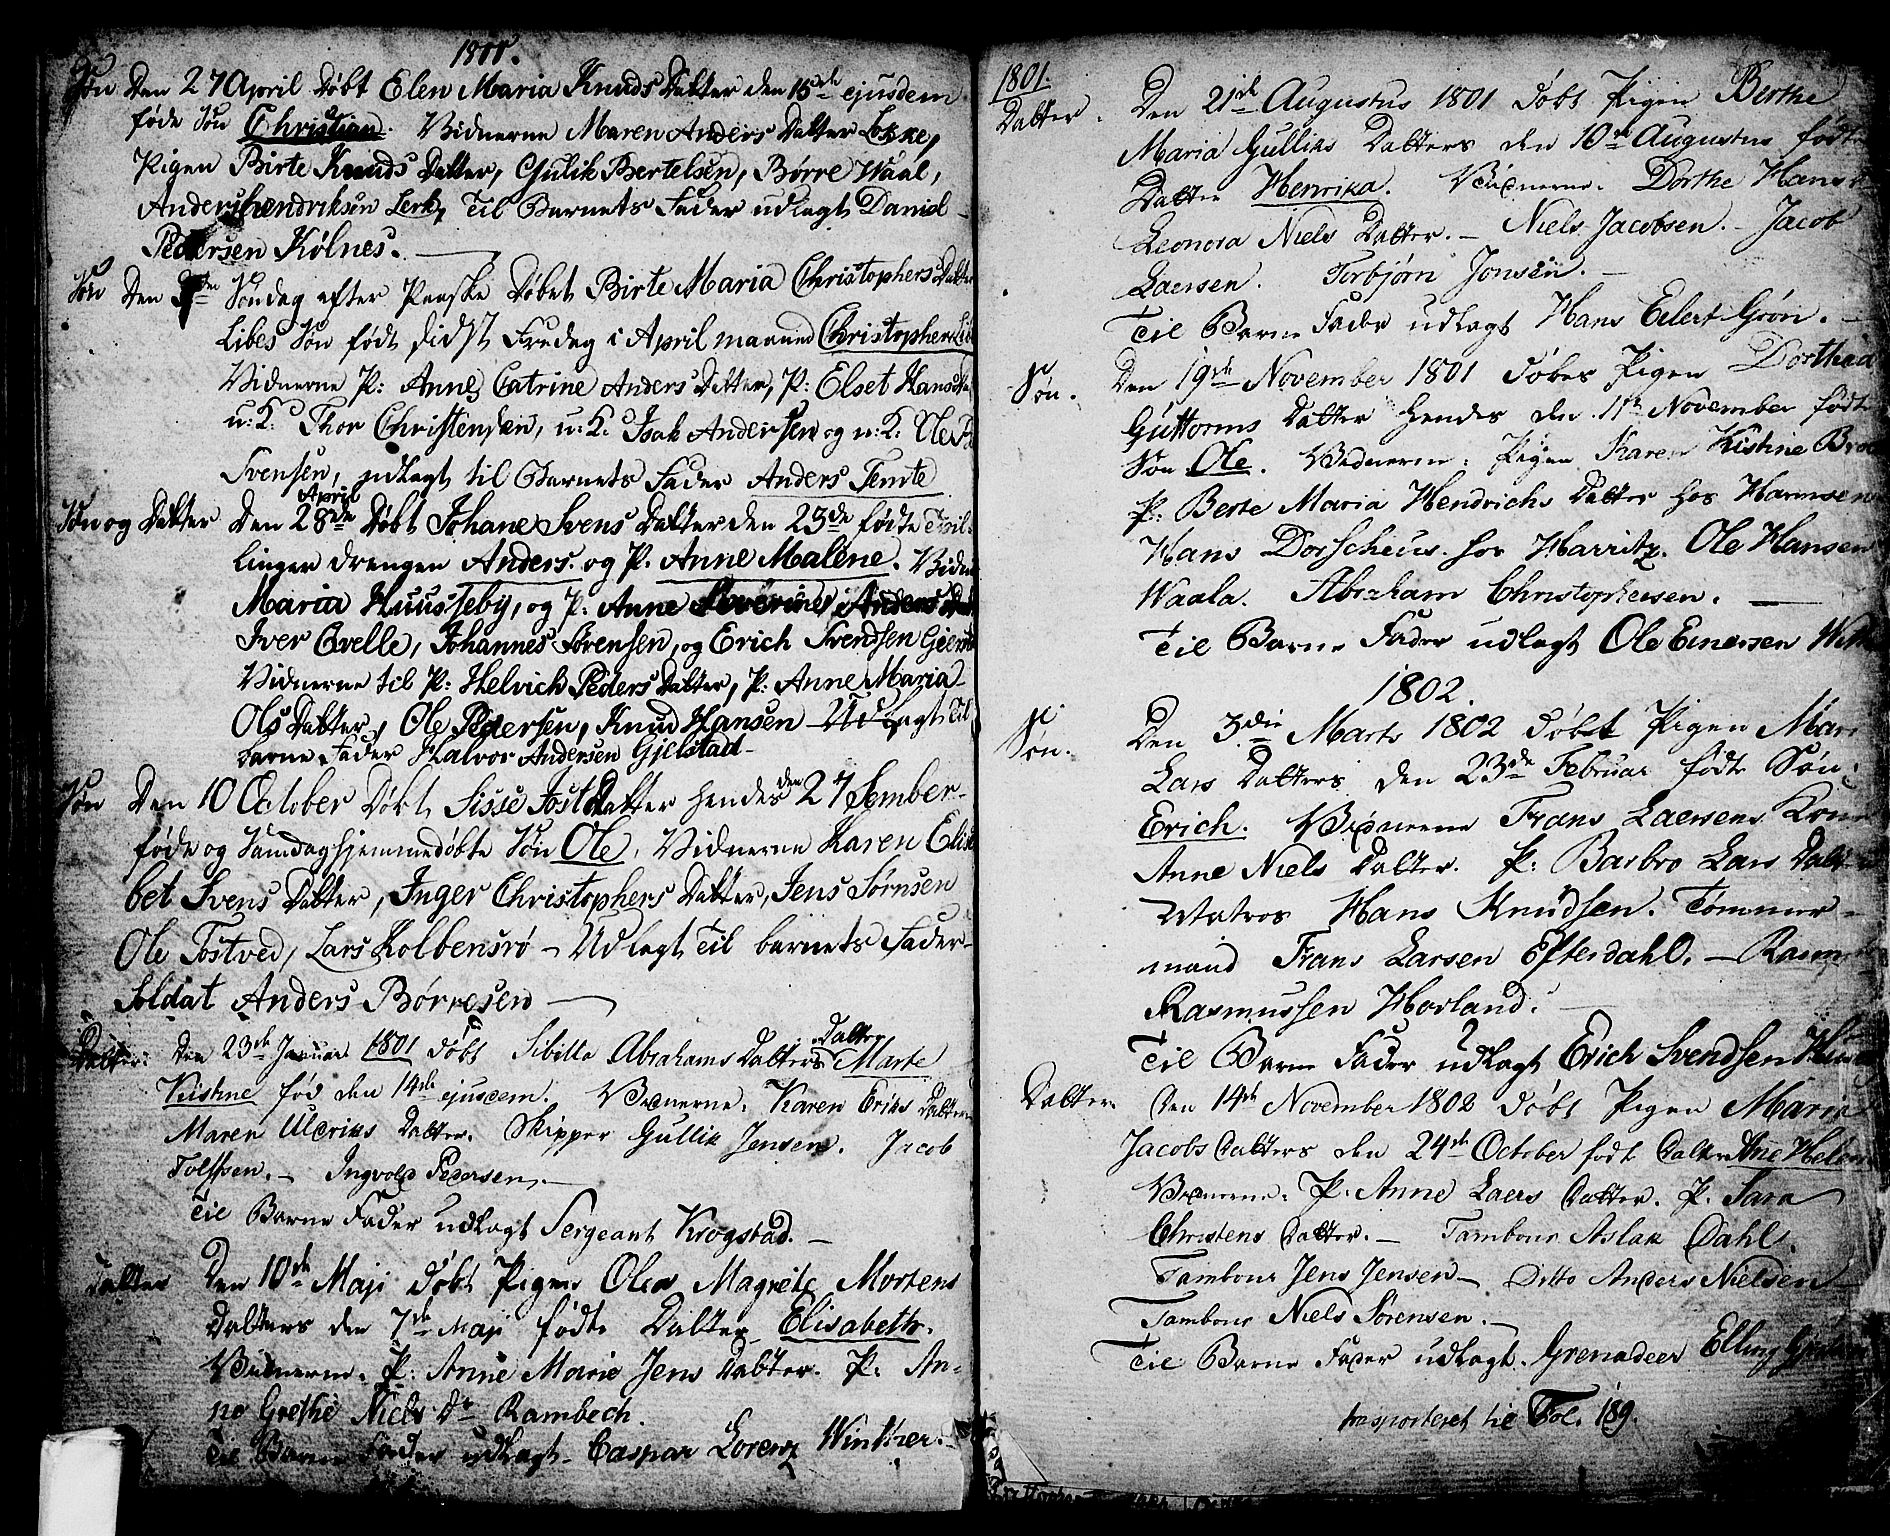 1800.
Søn Den 27 April Døbt Elen Maria Knuds Datter den 15de ejusdem
føde Søn Christian. Vidnerne Maren Anders Datter Løkke,
Pigen Birte Knuds Datter, Gulik Bertelsen, Børre Waal,
Anders Hendriksen Lerk, Til Barnets Fader udlagt Daniel
Pedersen Kølnes.
Søn Den Søndag efter Paaske Døbet Birte Maria Christophers Datter
Libes Søn født sidst Fredag i April maaned Christopher
Vidnerne P: Anne Catrine Anders Datter, P: Elset Hans
u: K: Thor Christensen, u: K: Isak Andersen og u: K: Ole
Svensen, udlagt til Barnets Fader Anders Temte
April
Søn og Datter Den 28de Døbt Johane Svens Datter den 23de fødte Tvil
linger Drengen Anders. og P. Anne Malene. Vidner
Maria Huusseby, og P. Anne Severine Anders
Iver Qvelle, Johannes Sørensen, og Erich Svendsen
Vidnerne til P: Helvich Peders Datter, P: Anne Maria
Ols Datter, Ole Pedersen, Knud Hansen – Udlagt Til
barne Fader Halvor Andersen Gjelstad
Søn Den 10 October Døbt Sisse Josts Datter hendes den 27 Sember
føde og Samdag hjemmedøbte Søn Ole, Vidnerne Karen Elisa
bet Svens Datter, Inger Christophers Datter, Jens Sørnsen
Ole Tostved, Lars Kolbensrø – Udlagt Til barnets Fader
Soldat Anders Børresen
Datter
Datter: Den 23de Januar 1801 døbt Sibille Abrahams Datters Marte
Kistine fød den 14de ejusdem. Vidnerne. Karen Eriks Datter
Maren Ulriks Datter. Skipper Gullik Jensen. Jacob
Tolfsen. – Ingvold Pedersen. –
Til Barne Fader udlagt Sergeant Krogstad. –
Datter Den 10de Maji døbt Pigen Olea Magrete Mortens
Datters den 7de Maji fødte Datter Elisabeth.
Vidnerne. P: Anne Marie Jens Datter. P: An-
ne Grethe Niels Dr Rambech.
Til Barne Fader udlagt. Caspar Lorenz Winther. –
1801.
Datter. Den 21de Augustus 1801 døbt Pigen Berthe
Maria Gulliks Datters den 10de Augustus fødte
Datter Henrika. Vidnerne. Dorthe Hans
Leonora Niels Datter. – Niels Jacobsen. – Jacob
Laersen. Torbjørn Jonsen. –
Til Barne Fader udlagt Hans Eilert Grøn. –
Søn. Den 19de November 1801 døbes Pigen Dorthea
Guttorms Datter hendes den 11te November fødte
Søn Ole. Vidnerne: Pigen Karen Kistine
P: Berte Maria Hendrichs Datter hos Harmsen
Hans Dorscheus. hos Harritz. Ole Hansen
Waala. Abraham Christophersen.
Til Barne Fader udlagt Ole Einersen
1802.
Søn. Den 3die Marts 1802 døbt Pigen Mari
Lars Datters den 23de Februar fødte Søn
Erich. Vidnerne Frans Laersens Kone
Anne Niels Datter. P: Barbro Lars Datter
Matros Hans Knudsen. Tømmer-
mand Frans Larsen Efterdahl. – Rasmus
Rasmussen Horland.
Til Barne Fader udlagt Erich Svendsen
Datter. Den 14de November 1802 døbt Pigen Maria
Jacobs Datters den 24de October fødte Datter Ane Helena
Vidnerne: P. Anne Laers Datter. P. Sara
Christens Datter. – Tambour Aslak Dahl.
Tambour Jens Jensen – Ditto Anders Nielsen –
Tambour Niels Sørensen. –
Til Barne Fader udlagt. Grenadeer Elling
transporteret til Fol. 189.